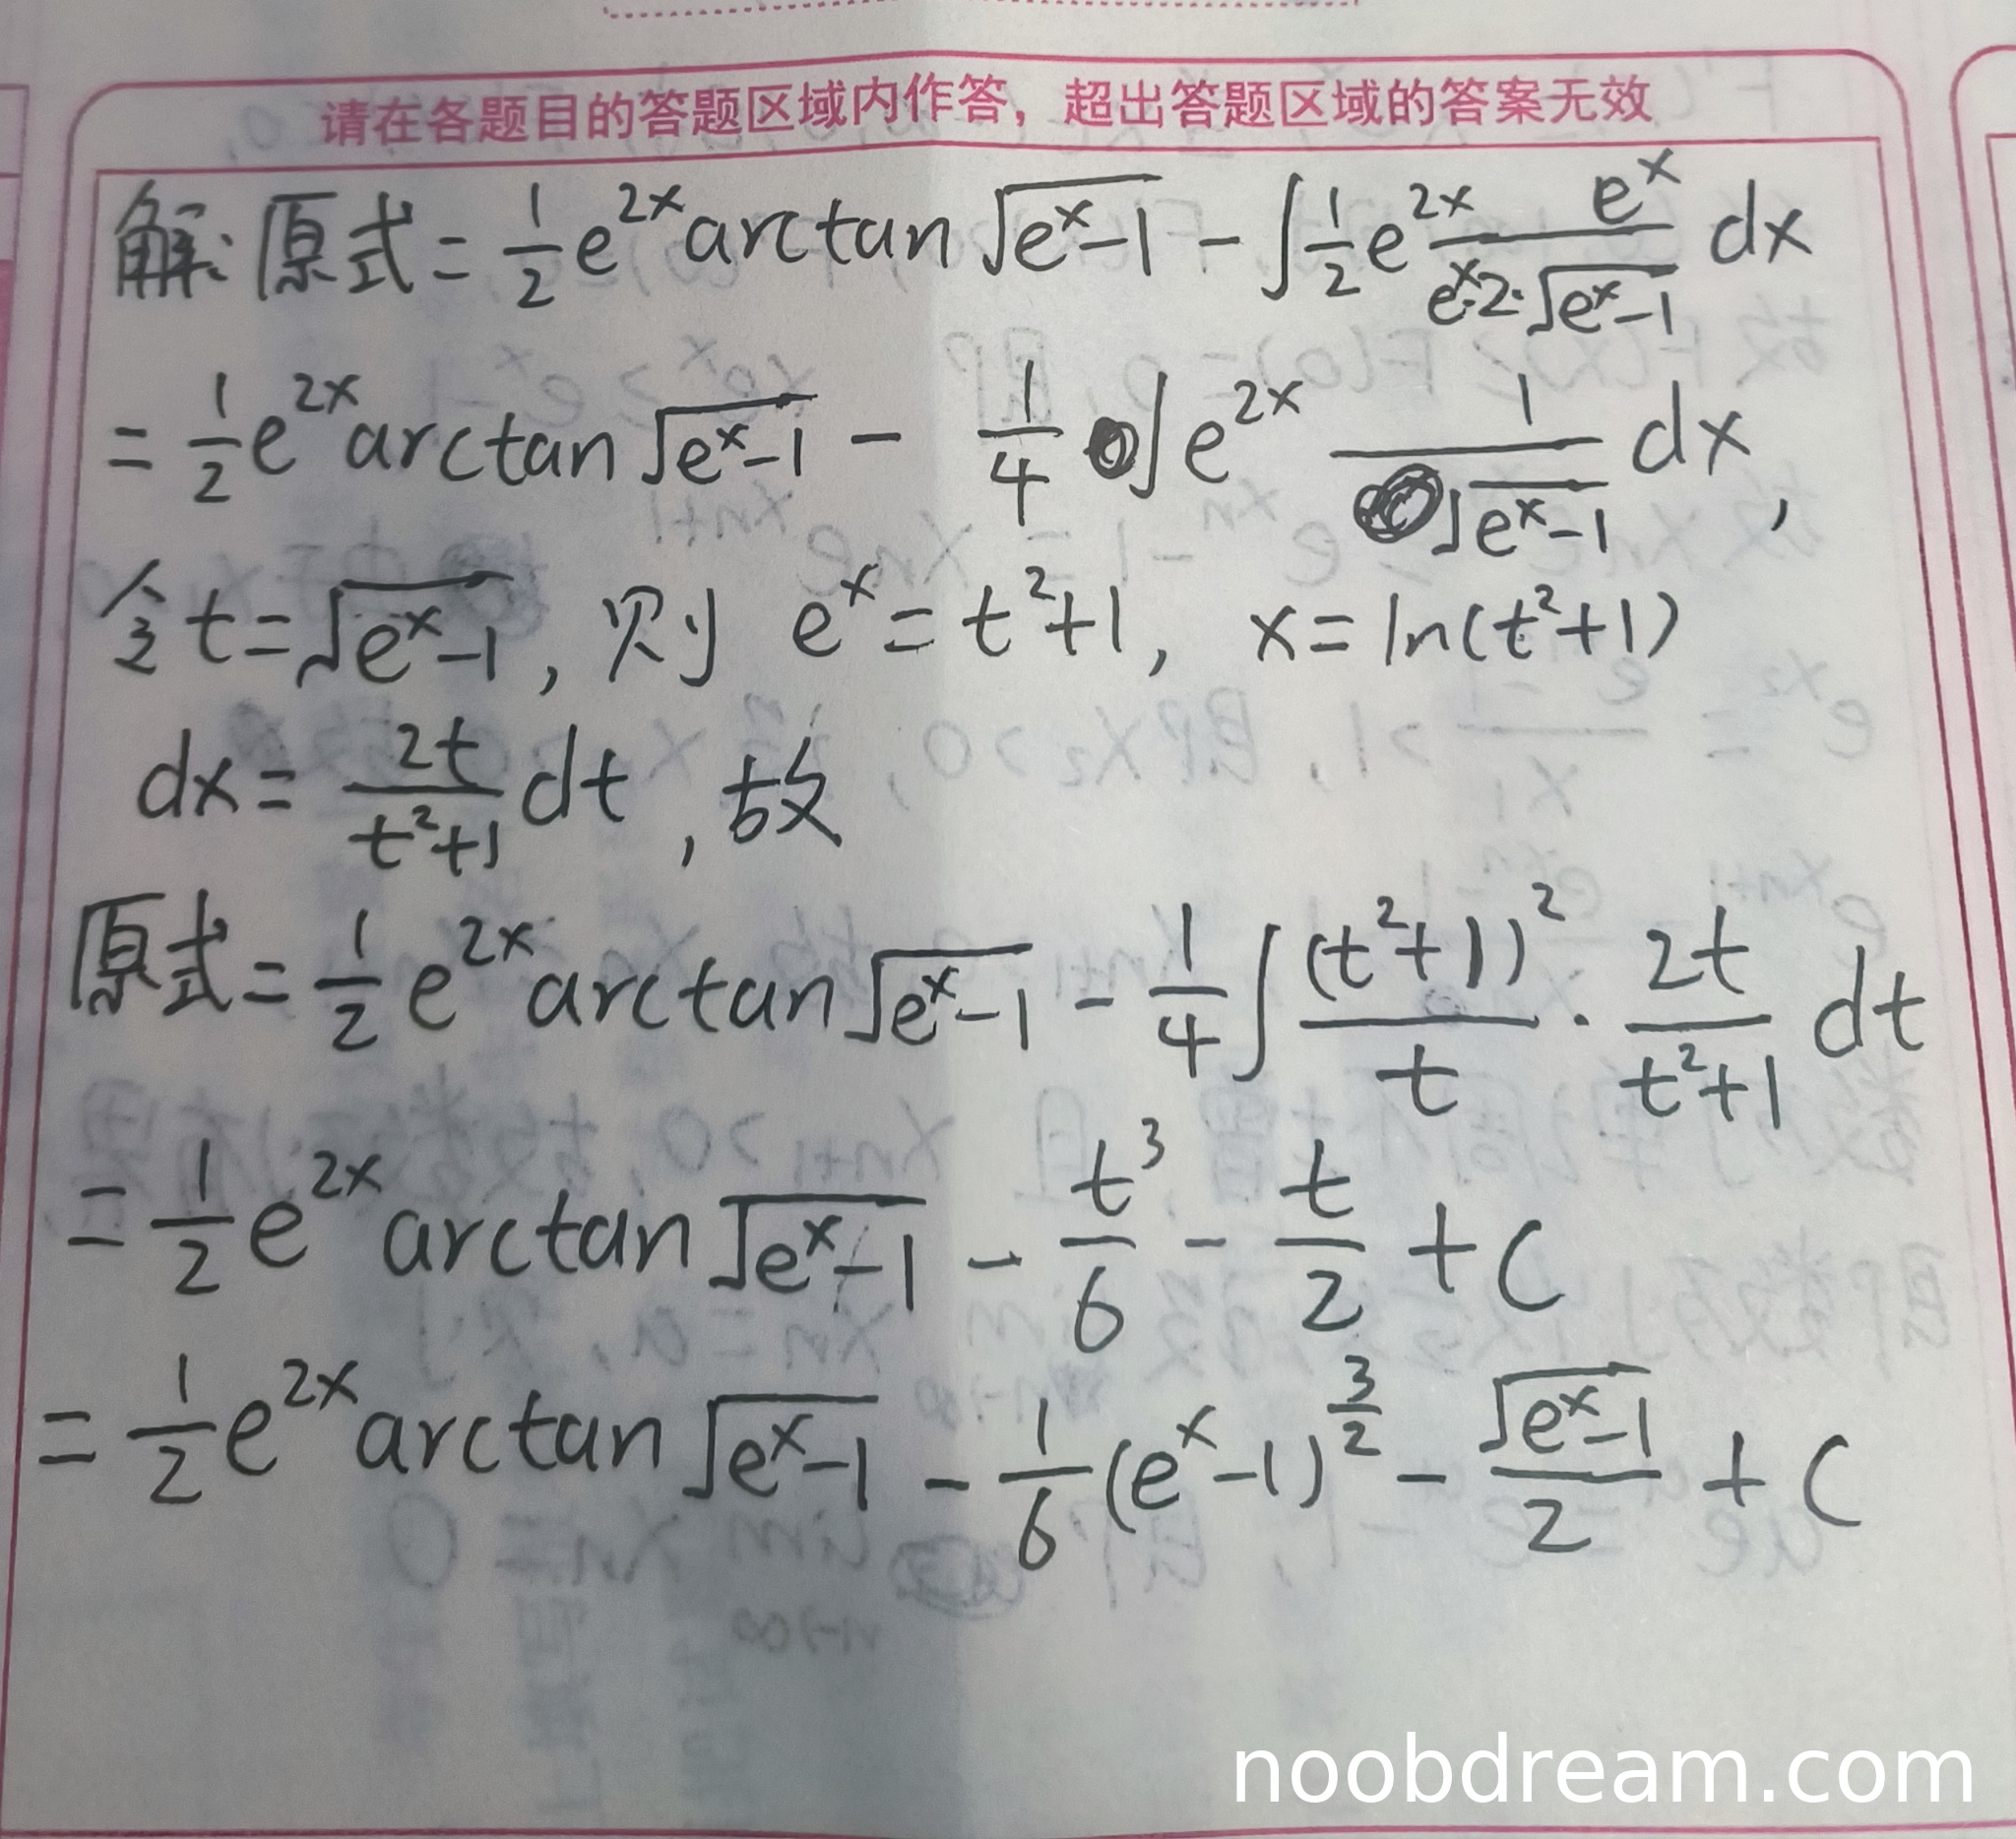 请在各题目的答题区域内作答，超出答题区域的答案无效
解：原式 = \frac{1}{2}e^{2x}arctan\sqrt{e^x-1} - \int\frac{1}{2}e^{2x}\frac{e^x}{e^x·2·\sqrt{e^x-1}}dx
= \frac{1}{2}e^{2x}arctan\sqrt{e^x-1} - \frac{1}{4}\int e^{2x}\frac{1}{\sqrt{e^x-1}}dx,
令 t=\sqrt{e^x-1}, 则 e^x=t^2+1, x=ln(t^2+1)
dx=\frac{2t}{t^2+1}dt, 故
原式 = \frac{1}{2}e^{2x}arctan\sqrt{e^x-1} - \frac{1}{4}\int\frac{(t^2+1)^2}{t}·\frac{2t}{t^2+1}dt
= \frac{1}{2}e^{2x}arctan\sqrt{e^x-1} - \frac{t^3}{6} - \frac{t}{2} + C
= \frac{1}{2}e^{2x}arctan\sqrt{e^x-1} - \frac{1}{6}(e^x-1)^{\frac{3}{2}} - \frac{\sqrt{e^x-1}}{2} + C
noobdream.com